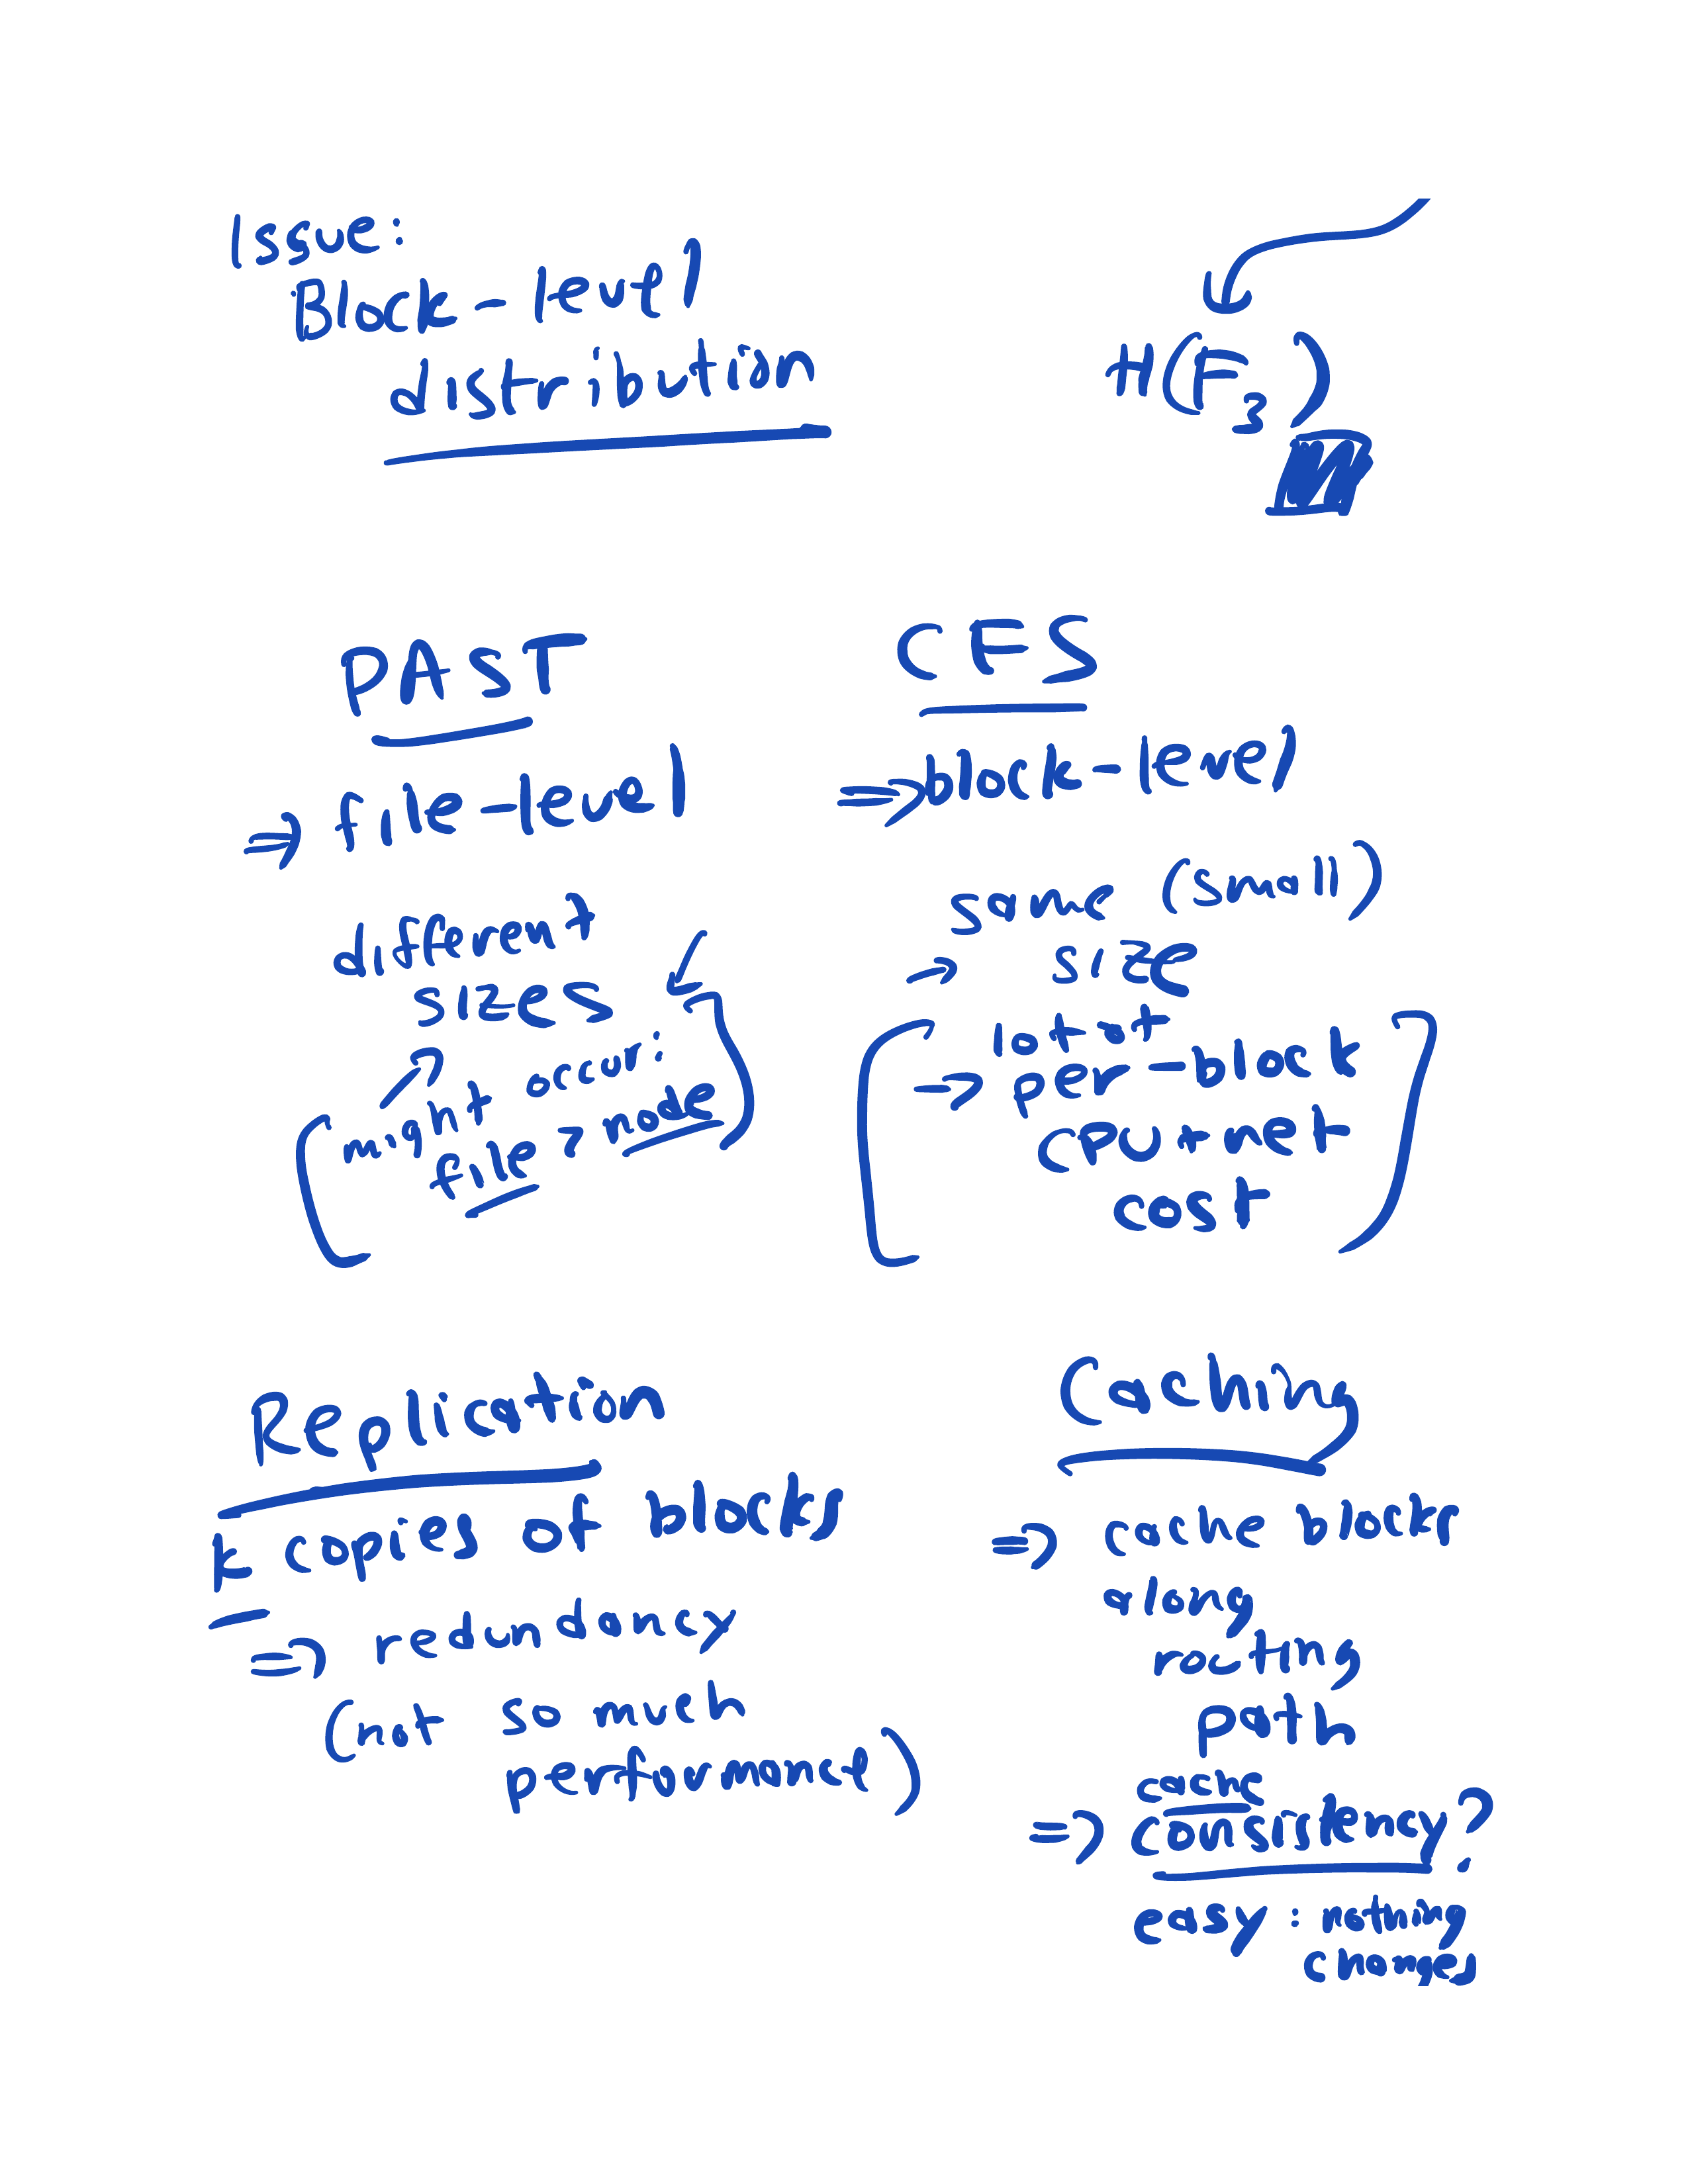 Issue:
Block-level
distribution
H(F3)
PAST
⇒ file-level
different
sizes
might occur:
file > node
CFS
⇒ block-level
same (small)
→ size
lot of
→ per-block
CPU + net
cost
Replication
k copies of blocks
⇒ redundancy
(not so much
performance)
Caching
⇒ cache blocks
along
routing
path
cache
⇒ consistency?
easy: nothing
changes